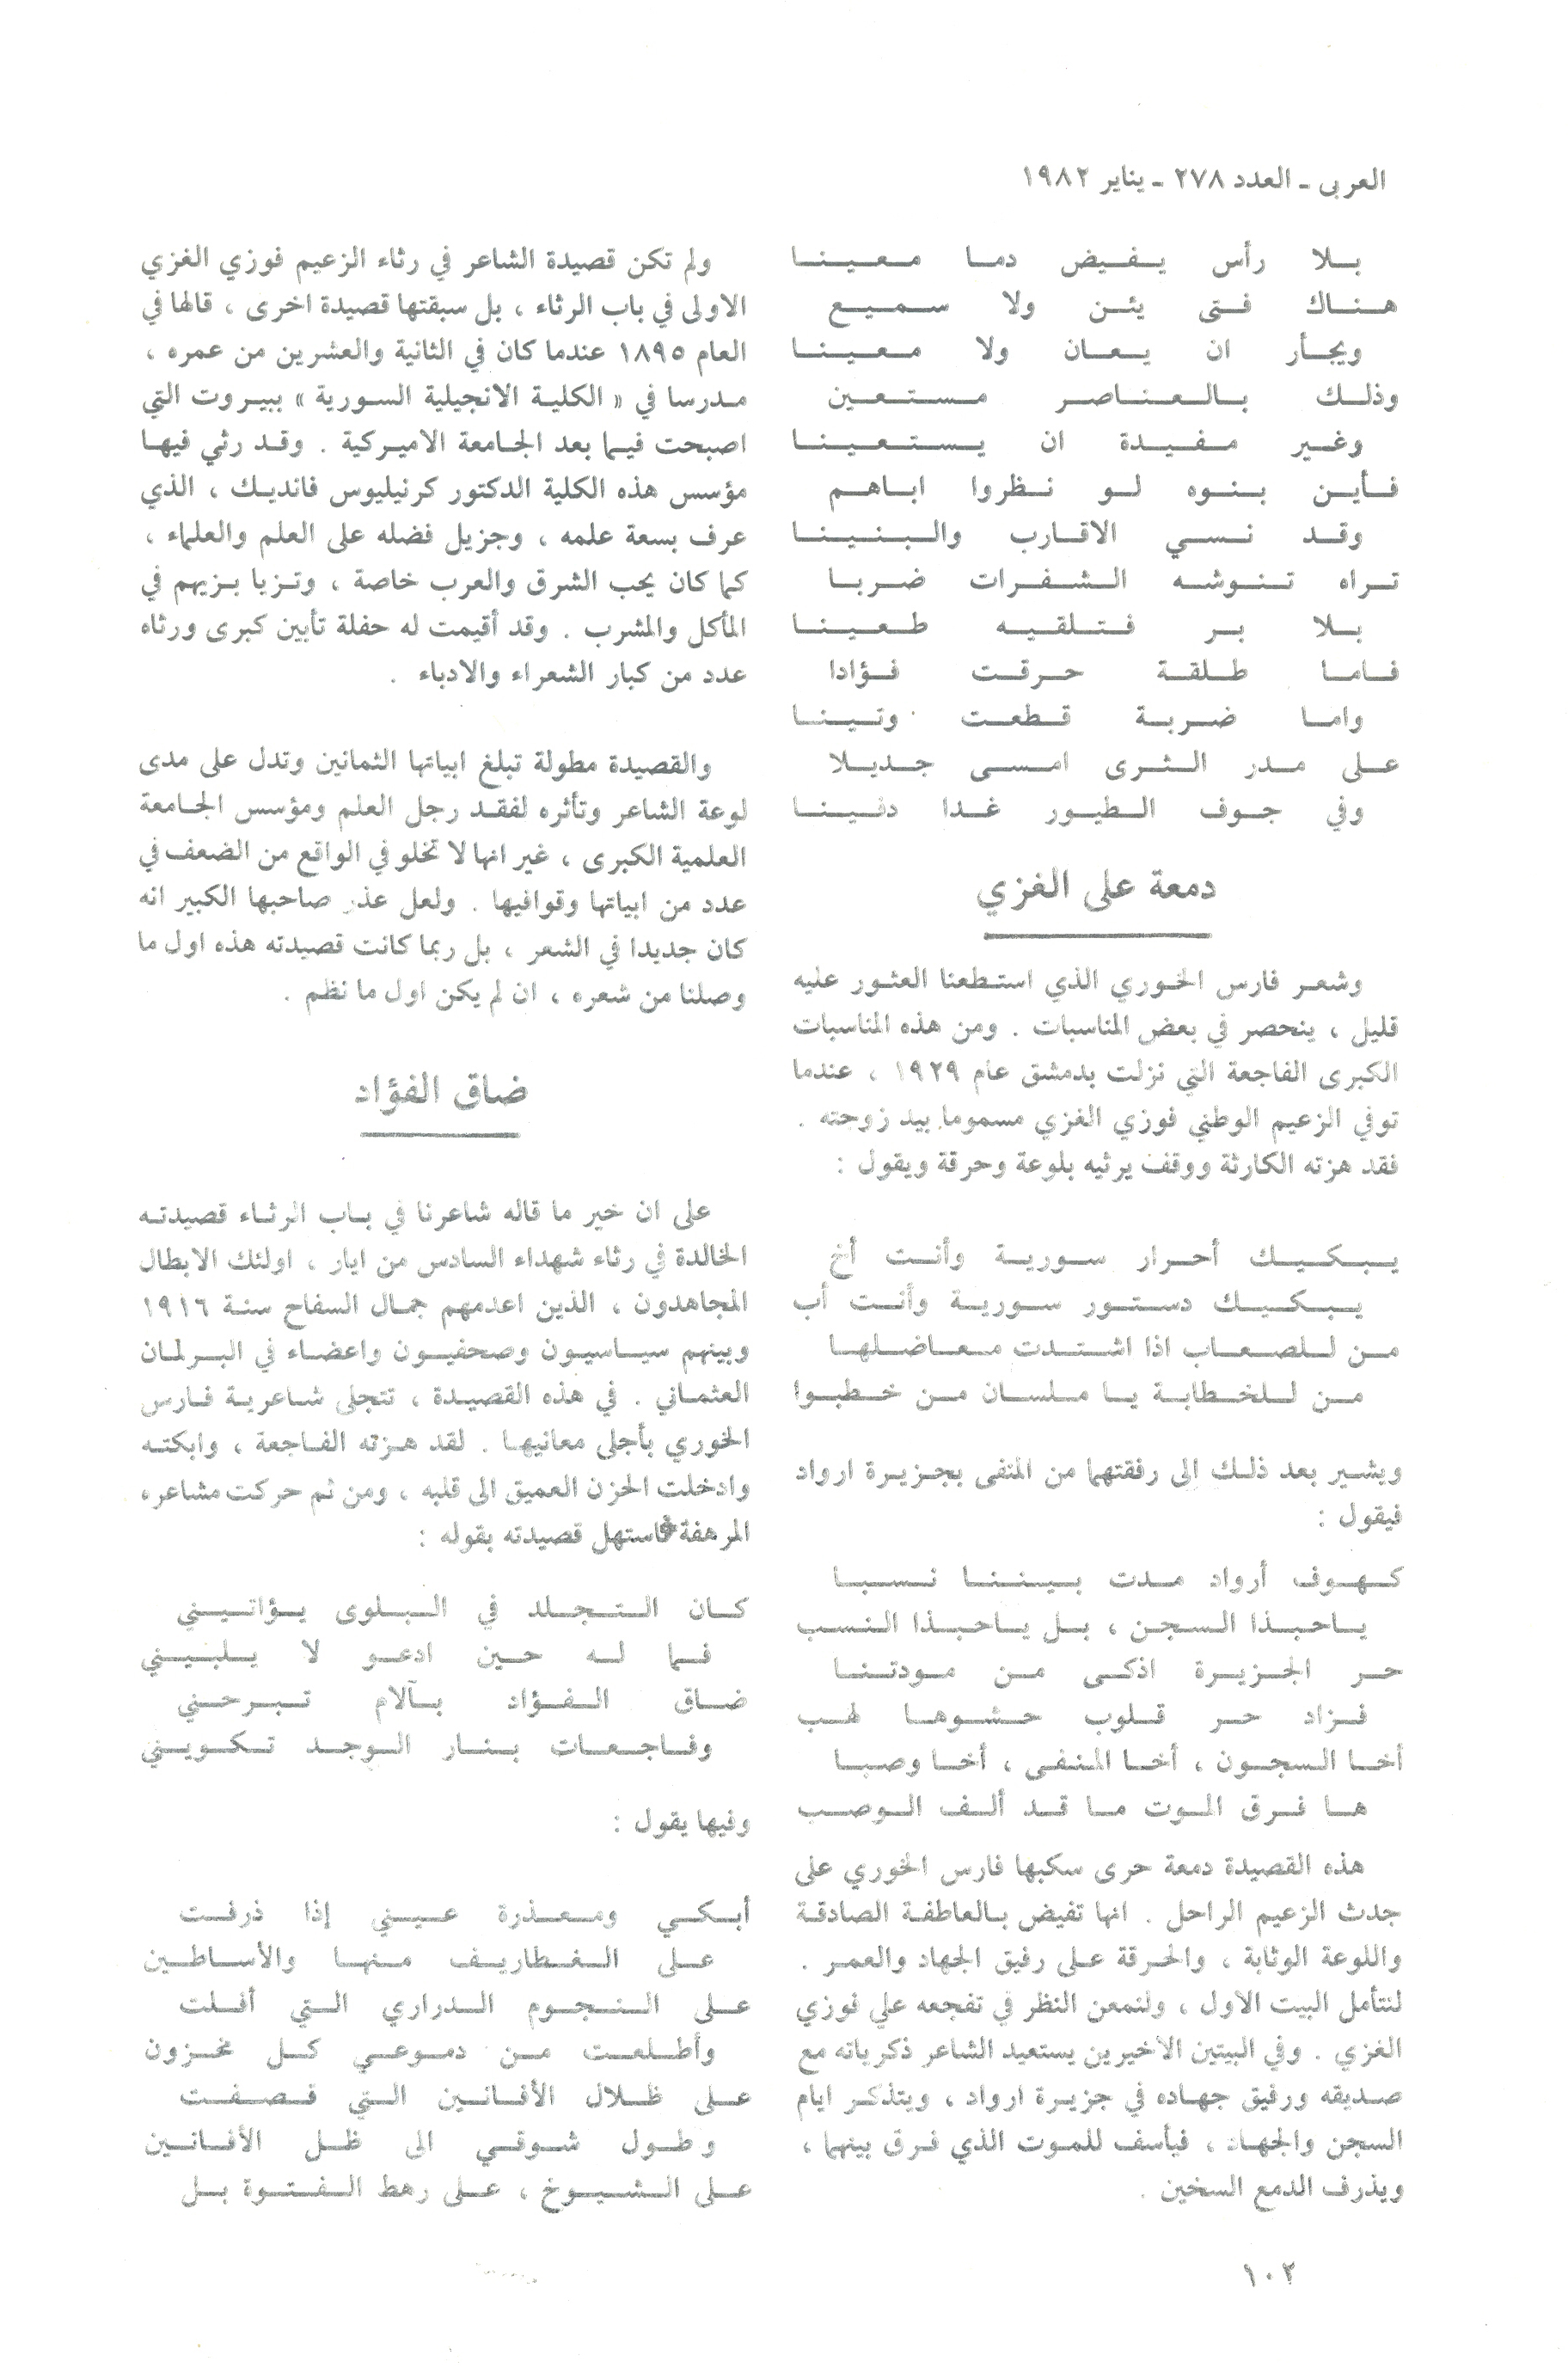 العربي ـ العدد ٢٧٨ ـ يناير ١٩٨٢
بلا رأس يفيض دما معينا
هناك فتى يئن ولا سميع
ويجأر ان يعان ولا معينا
وذلك بالعناصر مستعين
وغير مفيدة ان يستعينا
فأين بنوه لو نظروا اباهم
وقد نسي الاقارب والبنينا
تراه تنوشه الشفرات ضربا
بلا بر فتلقيه طعينا
فاما طلقة حرقت فؤادا
واما ضربة قطعت وتينا
على مدر الثرى امسى جديلا
وفي جوف الطيور غدا دفينا
دمعة على الغزي
وشعر فارس الخوري الذي استطعنا العثور عليه
قليل ، ينحصر في بعض المناسبات . ومن هذه المناسبات
الكبرى الفاجعة التي نزلت بدمشق عام ١٩٢٩ ، عندما
توفي الزعيم الوطني فوزي الغزي مسموما بيد زوجته .
فقد هزته الكارثة ووقف يرثيه بلوعة وحرقة ويقول :
يبكيك أحرار سورية وأنت أخ
يبكيك دستور سورية وأنت أب
من للصعاب اذا اشتدت معاضلها
من للخطابة يا ملسان من خطبوا
ويشير بعد ذلك إلى رفقتهما من المنفى بجزيرة ارواد
فيقول :
كهوف أرواد مدت بيننا نسبا
ياحبذا السجن ، بل ياحبذا النسب
حر الجزيرة اذكى من مودتنا
فزاد حر قلوب حشوها لهب
أخا السجون ، أخا المنفى ، أخا وصبا
ها فرق الموت ما قد ألف الوصب
هذه القصيدة دمعة حرى سكبها فارس الخوري على
جدث الزعيم الراحل . انها تفيض بالعاطفة الصادقة
واللوعة الوثابة ، والحرقة على رفيق الجهاد والعمر .
لنتأمل البيت الاول ، ولنمعن النظر في تفجعه علي فوزي
الغزي . وفي البيتين الأخيرين يستعيد الشاعر ذكرياته مع
صديقه ورفيق جهاده في جزيرة ارواد ، ويتذكر ايام
السجن والجهاد ، فيأسف للموت الذي فرق بينهما ،
ويذرف الدمع السخين .
ولم تكن قصيدة الشاعر في رثاء الزعيم فوزي الغزي
الاولى في باب الرثاء ، بل سبقتها قصيدة اخرى ، قالها في
العام ١٨٩٥ عندما كان في الثانية والعشرين من عمره ،
مدرسا في « الكلية الانجيلية السورية » ببيروت التي
اصبحت فيما بعد الجامعة الاميركية . وقد رثي فيها
مؤسس هذه الكلية الدكتور كرنيليوس فانديك ، الذي
عرف بسعة علمه ، وجزيل فضله على العلم والعلماء ،
كما كان يحب الشرق والعرب خاصة ، وتزيا بزيهم في
المأكل والمشرب . وقد أقيمت له حفلة تأبين كبرى ورثاه
عدد من كبار الشعراء والادباء .
والقصيدة مطولة تبلغ ابياتها الثمانين وتدل على مدى
لوعة الشاعر وتأثره لفقد رجل العلم ومؤسس الجامعة
العلمية الكبرى ، غير انها لا تخلو في الواقع من الضعف في
عدد من ابياتها وقوافيها . ولعل عذر صاحبها الكبير انه
كان جديدا في الشعر ، بل ربما كانت قصيدته هذه اول ما
وصلنا من شعره ، ان لم يكن اول ما نظم .
ضاق الفؤاد
على ان خير ما قاله شاعرنا في باب الرثاء قصيدته
الخالدة في رثاء شهداء السادس من ايار ، اولئك الابطال
المجاهدون ، الذين اعدمهم جمال السفاح سنة ١٩١٦
وبينهم سياسيون وصحفيون واعضاء في البرلمان
العثماني . في هذه القصيدة ، تتجلى شاعرية فارس
الخوري بأجلى معانيها . لقد هزته الفاجعة ، وابكته
وادخلت الحزن العميق الى قلبه ، ومن ثم حركت مشاعره
المرهفة فاستهل قصيدته بقوله :
كان التجلد في البلوى يؤاتيني
فما له حين ادعو لا يلبيني
ضاق الفؤاد بآلام تبرحني
وفاجعات بنار الوجد تكويني
وفيها يقول :
أبكي ومعذرة عيني إذا ذرفت
على الغطاريف منها والأساطين
على النجوم الدراري التي أفلت
وأطلعت من دموعي كل مخزون
على ظلال الأفانين التي قصفت
وطول شوقي الى ظل الأفانين
على الشيوخ ، على رهط الفتوة بل
١٠٢